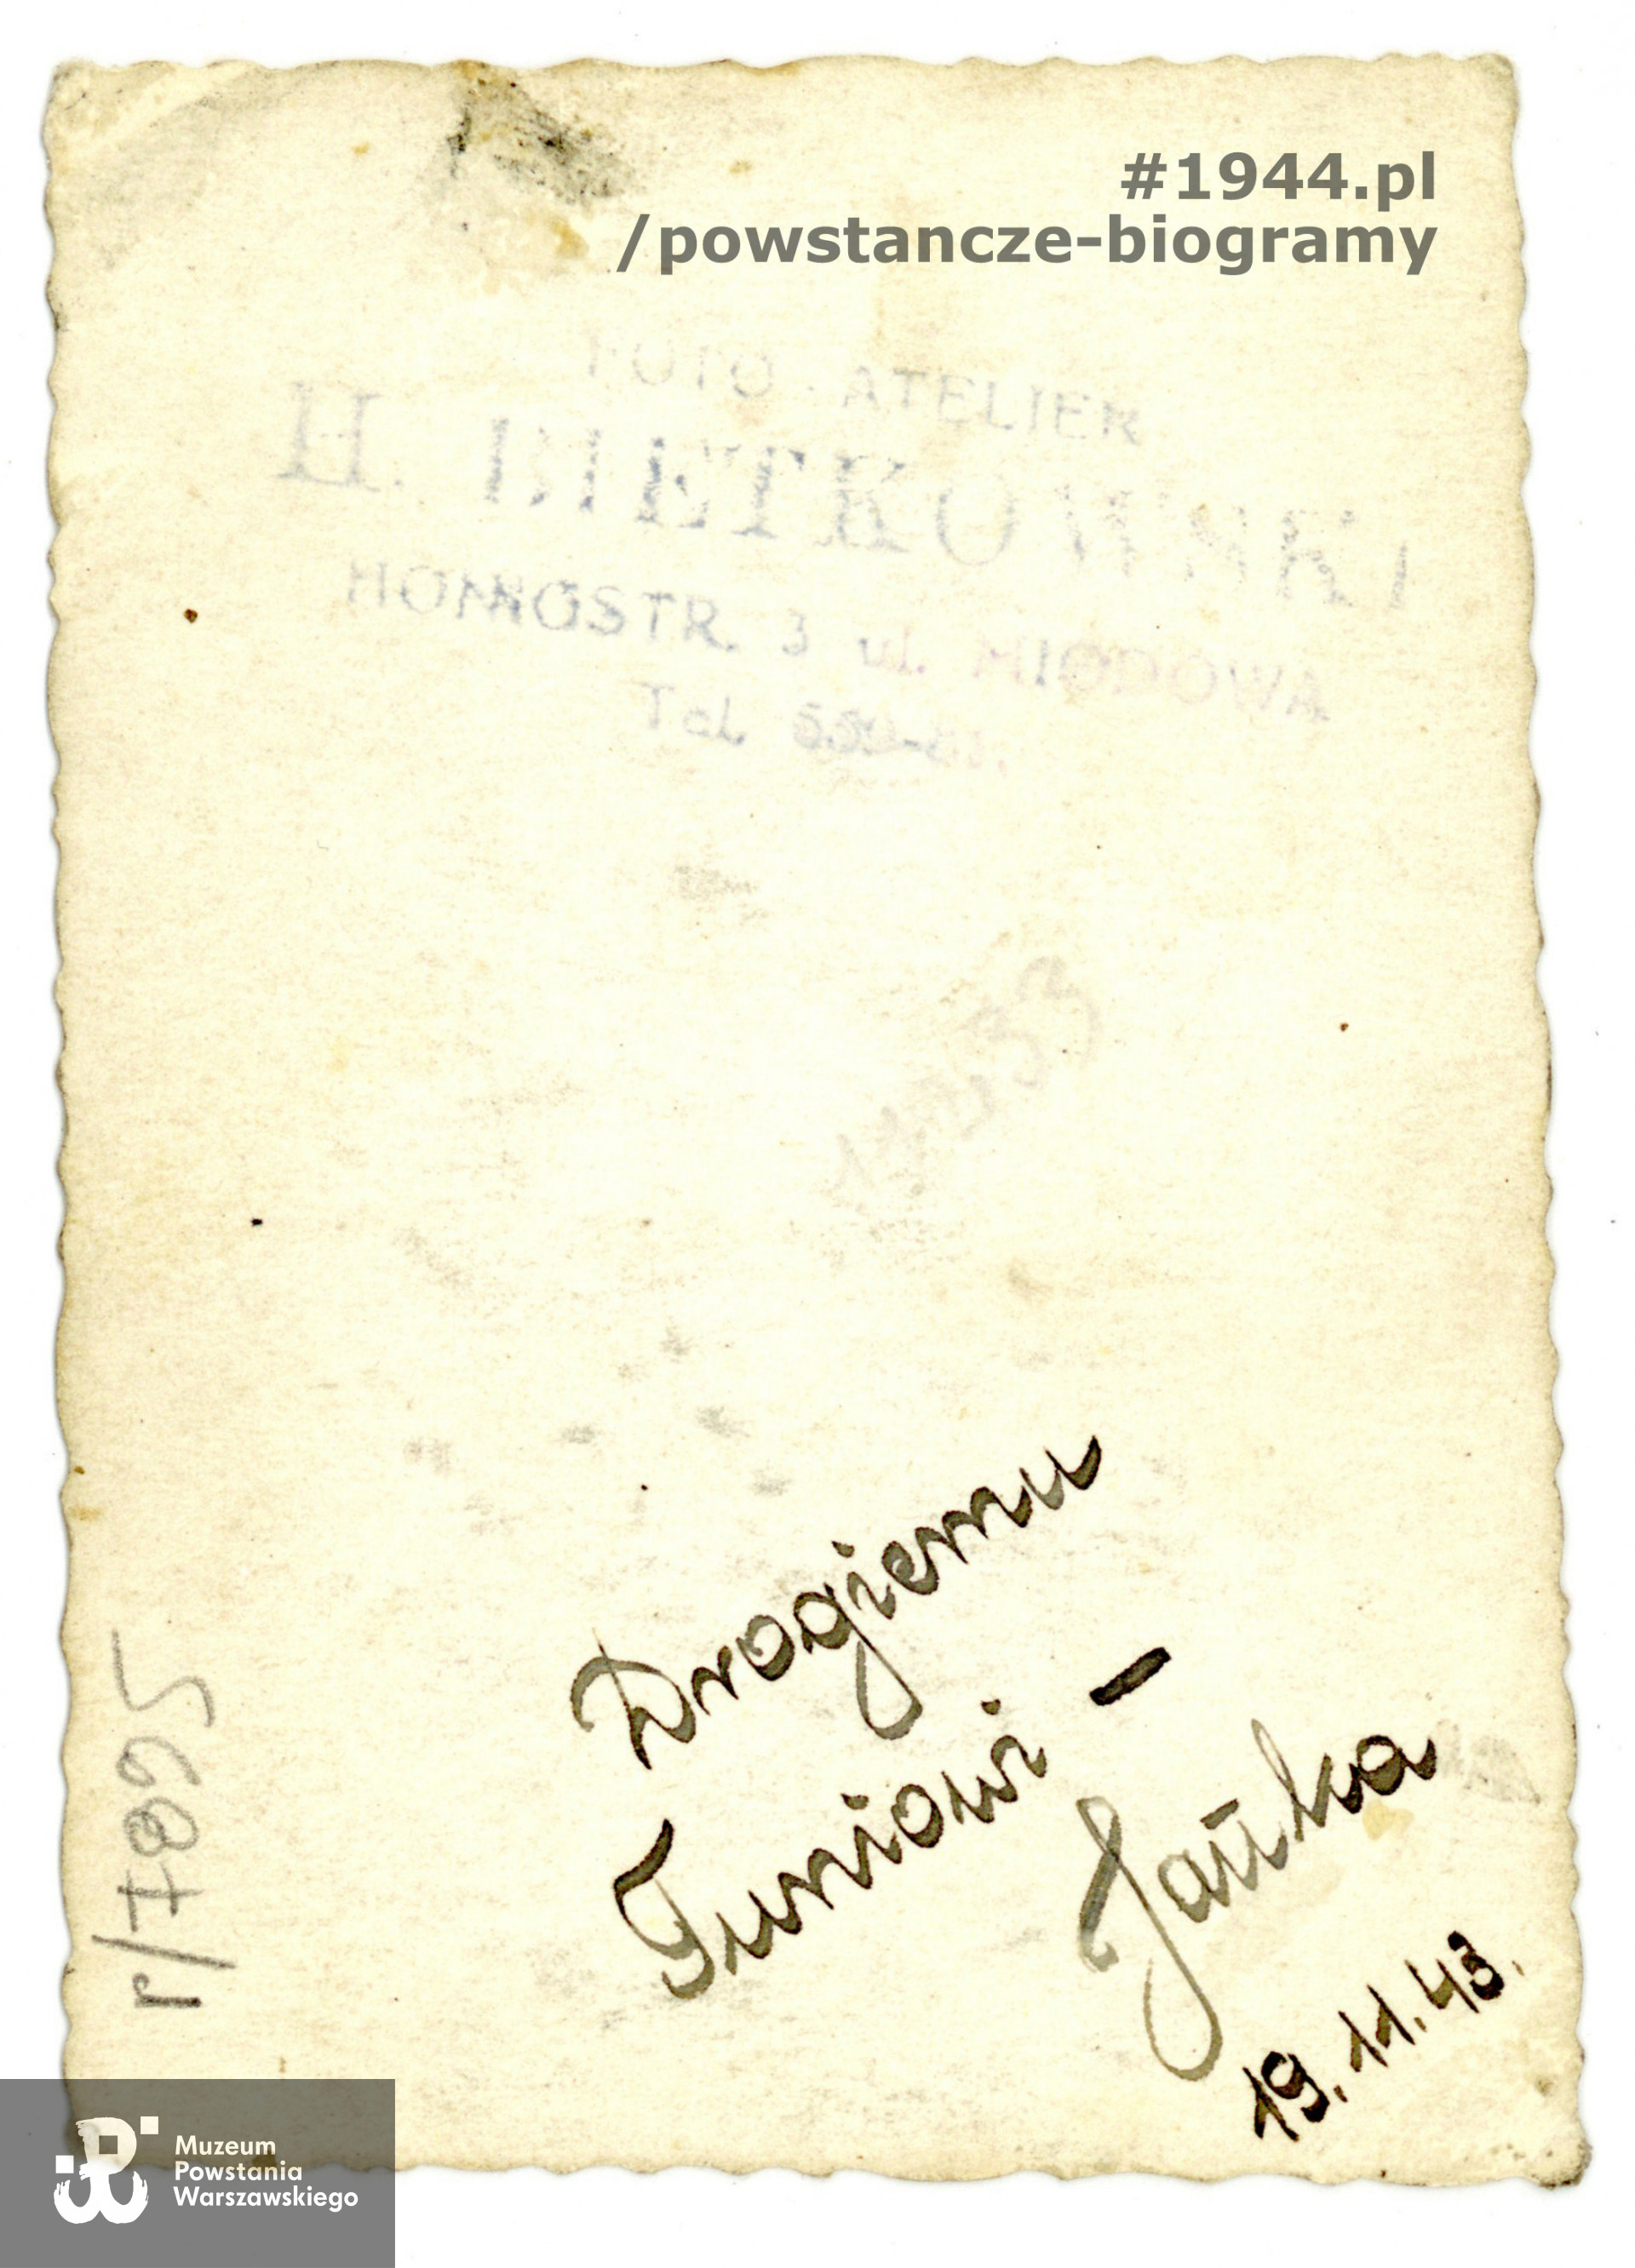 #1944.pl
/powstancze-biogramy
FOTO - ATELIER
H.
HONIGSTR. 3 ul. MIODOWA
Tel.
Drogiemu
Tuniowi —
Jańka
19.11.43.
r/7895
Muzeum
Powstania
Warszawskiego